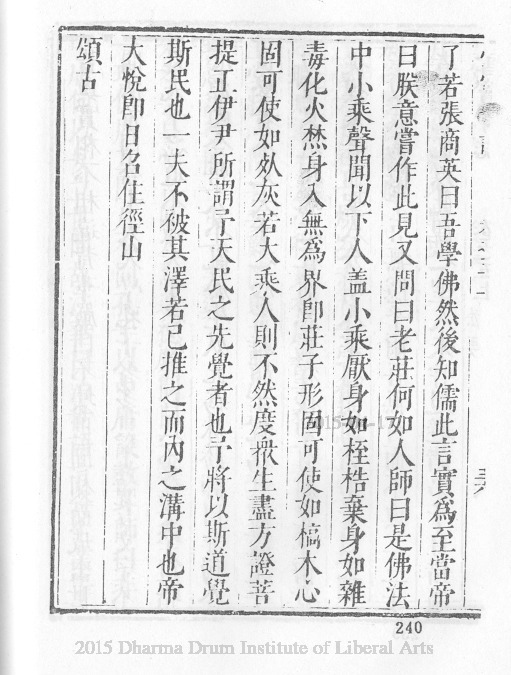 了若張商英曰吾學佛然後知儒此言實為至當帝
曰朕意嘗作此見又問曰老莊何如人師曰是佛法
中小乘聲聞以下人盖小乘厭身如桎梏棄身如雜
毒化火焚身入無為界卽莊子形固可使如槁木心
固可使如死灰若大乘人則不然度衆生盡方證菩
提正伊尹所謂予天民之先覺者也予將以斯道覺
斯民也一夫不被其澤若己推之而內之溝中也帝
大悅卽日名住徑山
頌古
240
2015 Dharma Drum Institute of Liberal Arts